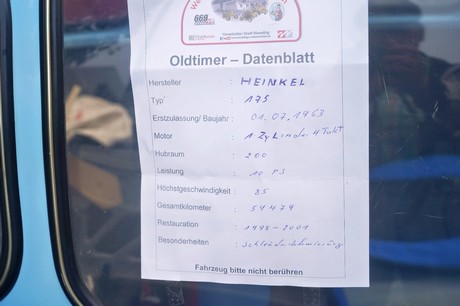 668
Oldtimer – Datenblatt
Hersteller : HEINKEL
Typ : 175
Erstzulassung/ Baujahr : 01.07.1963
Motor : 1 Zylinder 4 Takt
Hubraum : 200
Leistung : 10 PS
Höchstgeschwindigkeit : 85
Gesamtkilometer : 54479
Restauration : 1998-2001
Besonderheiten :
Fahrzeug bitte nicht berühren